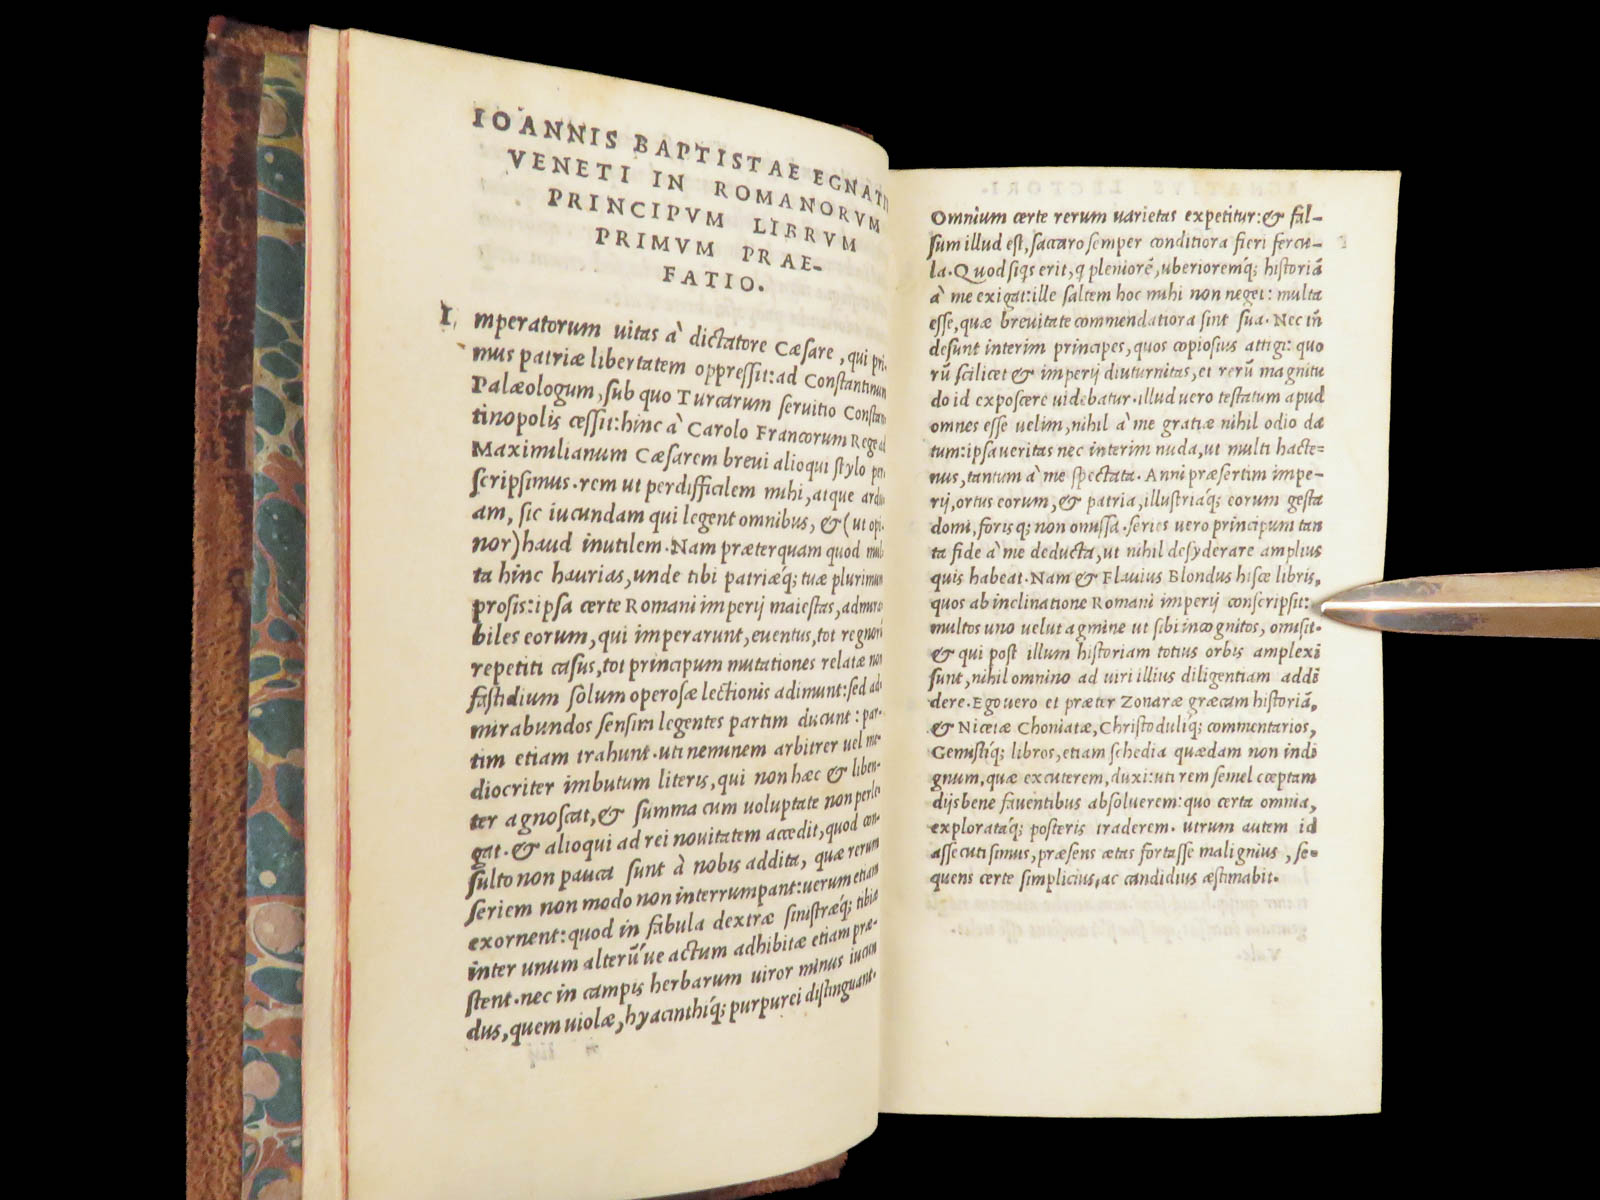 IOANNIS BAPTISTAE EGNATII
VENETI IN ROMANORVM
PRINCIPVM LIBRVM
PRIMVM PRAE-
FATIO.
I, mperatorum uitas à dictatore Cæsare, qui pri-
mus patriæ libertatem oppreſſit: ad Conſtantinum
Palæologum, ſub quo Turcarum ſeruitio Conſtan
tinopolis ceſſit: hinc à Carolo Francorum Rege ad
Maximilianum Cæſarem breui alioqui ſtylo per
ſcripſimus. rem ut perdifficilem mihi, atque ardu
am, ſic iucundam qui legent omnibus, & (ut opi-
nor) haud inutilem. Nam præterquam quod mul
ta hinc haurias, unde tibi patriæq́; tuæ plurimum
proſis: ipſa certe Romani imperij maieſtas, admira
biles eorum, qui imperarunt, euentus, tot regnorū
repetiti caſus, tot principum mutationes relatæ non
faſtidium ſolum operoſæ lectionis adimunt: ſed ad
mirabundos ſenſim legentes partim ducunt: par-
tim etiam trahunt. uti neminem arbitrer uel me-
diocriter imbutum literis, qui non hæc & liben-
ter agnoſcat, & ſumma cum uoluptate non perle
gat. & alioqui ad rei nouitatem accedit, quod con-
ſulto non pauca ſunt à nobis addita, quæ rerum
ſeriem non modo non interrumpant: uerum etiam
exornent: quod in fabula dextræ ſiniſtræq́; tibiæ
inter unum alterū́ue actum adhibitæ etiam præ-
ſtent. nec in campis herbarum uiror minus iucun
dus, quem uiolæ, hyacinthiq́; purpurei diſtinguant.
Omnium certe rerum uarietas expetitur: & fal-
ſum illud eſt, ſaccaro ſemper conditiora fieri fercu-
la. Quod ſiqs erit, q pleniorē, uberioremq́; hiſtoriā
à me exigat: ille ſaltem hoc mihi non neget: multa
eſſe, quæ breuitate commendatiora ſint ſua. Nec iñ
deſunt interim principes, quos copioſius attigi: quo
rū ſcilicet & imperij diuturnitas, et rerū magnitu
do id expoſcere uidebatur. illud uero teſtatum apud
omnes eſſe uelim, nihil à me gratiæ nihil odio da
tum: ipſa ueritas nec interim nuda, ut multi hacte=
nus, tantum à me ſpectata. Anni præſertim impe-
rij, ortus eorum, & patria, illuſtriaq́; eorum geſta
domi, foris q; non omiſſa. ſeries uero principum tan
ta fide à me deducta, ut nihil deſyderare amplius
quis habeat. Nam & Flauius Blondus hiſce libris,
quos ab inclinatione Romani imperij conſcripſit:
multos uno uelut agmine ut ſibi incognitos, omiſit.
& qui poſt illum hiſtoriam totius orbis amplexi
ſunt, nihil omnino ad uiri illius diligentiam addi
dere. Ego uero et præter Zonaræ græcam hiſtoriā,
& Nicetæ Choniatæ, Chriſtoduliq́; commentarios,
Gemiſtiq́; libros, etiam ſchedia quædam non indi
gnum, quæ excuterem, duxi: uti rem ſemel cœptam
dijs bene fauentibus abſoluerem: quo certa omnia,
explorataq́; poſteris traderem. utrum autem id
aſſecuti ſimus, præſens ætas fortaſſe malignius, ſe-
quens certe ſimplicius, ac candidius æſtimabit.